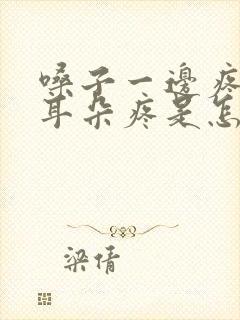 嗓子一邊疼
耳朵疼是怎
梁倩